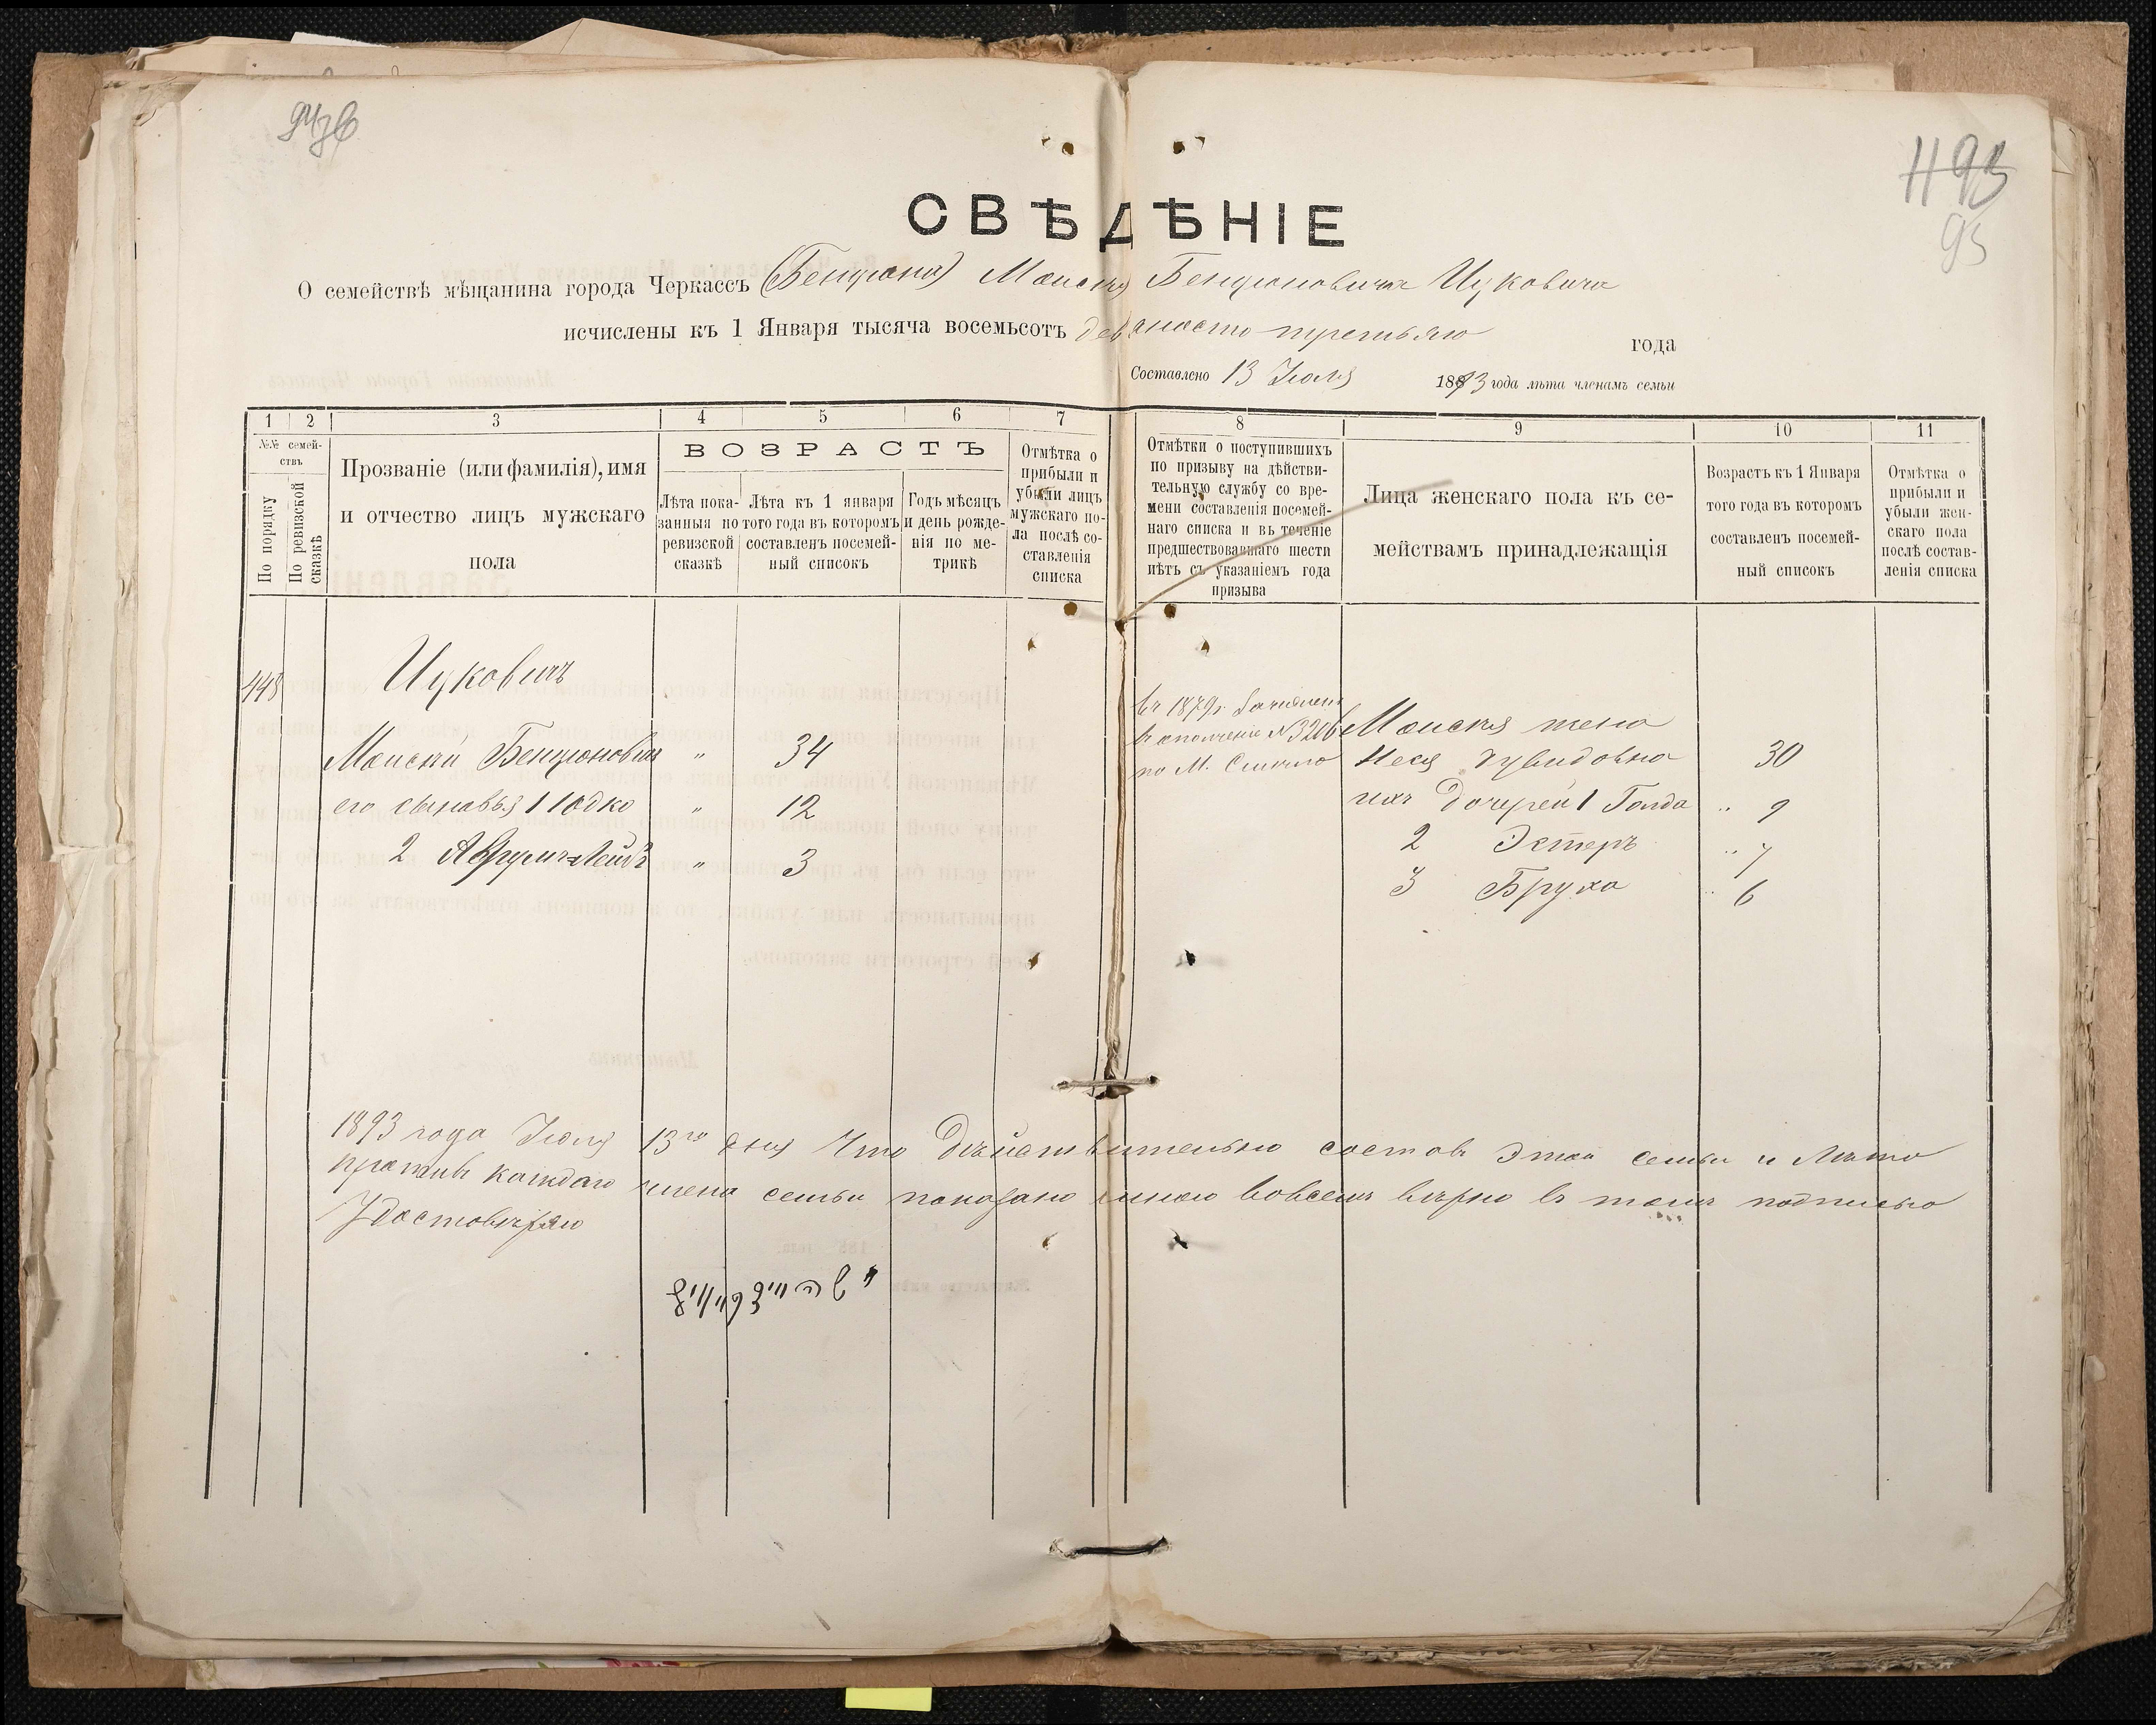 1193
95
СВѢДѢНІЕ
О семействѣ мѣщанина города Черкассъ (Бенціона) Моисея Бенціоновича Ицковича
исчислены къ 1 Января тысяча восемьсотъ девяносто третьяго года
Составлено 13 Іюля 1893 года лѣта членамъ семьи
1 2 3 4 5 6 7 8 9 10 11
№№ семей-
ствъ
По порядку
По ревизской
сказкѣ
Прозваніе (или фамилія), имя
и отчество лицъ мужскаго
пола
ВОЗРАСТЪ
Лѣта пока-
занныя по
ревизской
сказкѣ
Лѣта къ 1 января
того года въ которомъ
составленъ посемей-
ный списокъ
Годъ мѣсяцъ
и день рожде-
нія по ме-
трикѣ
Отмѣтка о
прибыли и
убыли лицъ
мужскаго по-
ла послѣ со-
ставленія
списка
Отмѣтки о поступившихъ
по призыву на дѣйстви-
тельную службу со вре-
мени составленія посемей-
наго списка и въ теченіе
предшествовавшаго шести
лѣтъ съ указаніемъ года
призыва
Лица женскаго пола къ се-
мействамъ принадлежащія
Возрастъ къ 1 Января
того года въ которомъ
составленъ посемей-
ный списокъ
Отмѣтка о
прибыли и
убыли жен-
скаго пола
послѣ состав-
ленія списка
448 Ицковичъ
Моисей Бенціоновичъ " 34
его сыновья 1 Іодко " 12
2 Аврумъ=Лейбъ " 3
въ 1879 г. зачисленъ
въ ополченіе № 3206
по М.
Моисея жена
Неся 30
ихъ дочерей 1 Голда " 9
2 Эстеръ " 7
3 Бруха " 6
1893 года Іюля 13го дня Что дѣйствительно составъ этой семьи и лѣта
противъ каждаго члена семьи показано мною вовсемъ вѣрно въ томъ подписью
Удостовѣряю